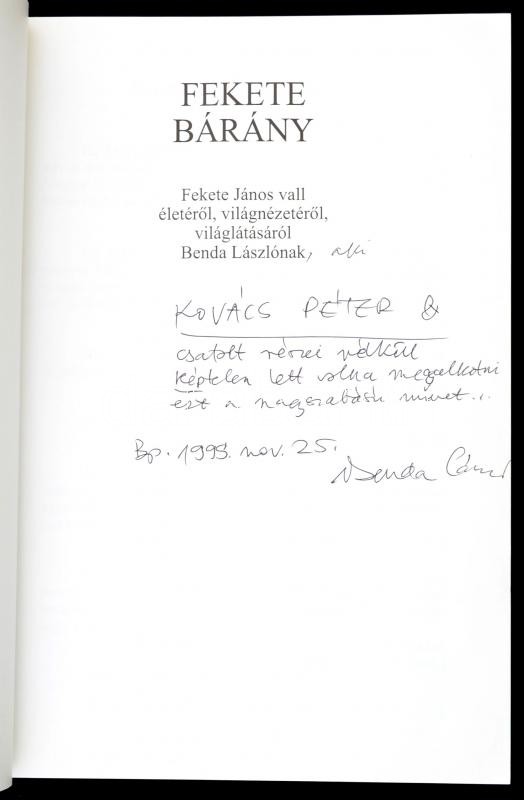 FEKETE
BÁRÁNY
Fekete János vall
életéről, világnézetéről,
világlátásáról
Benda Lászlónak, aki
KOVÁCS PÉTER &
csatolt részei nélkül
képtelen lett volna megalkotni
ezt a nagyszabású művet...
Bp. 1999. nov. 25.
Benda László